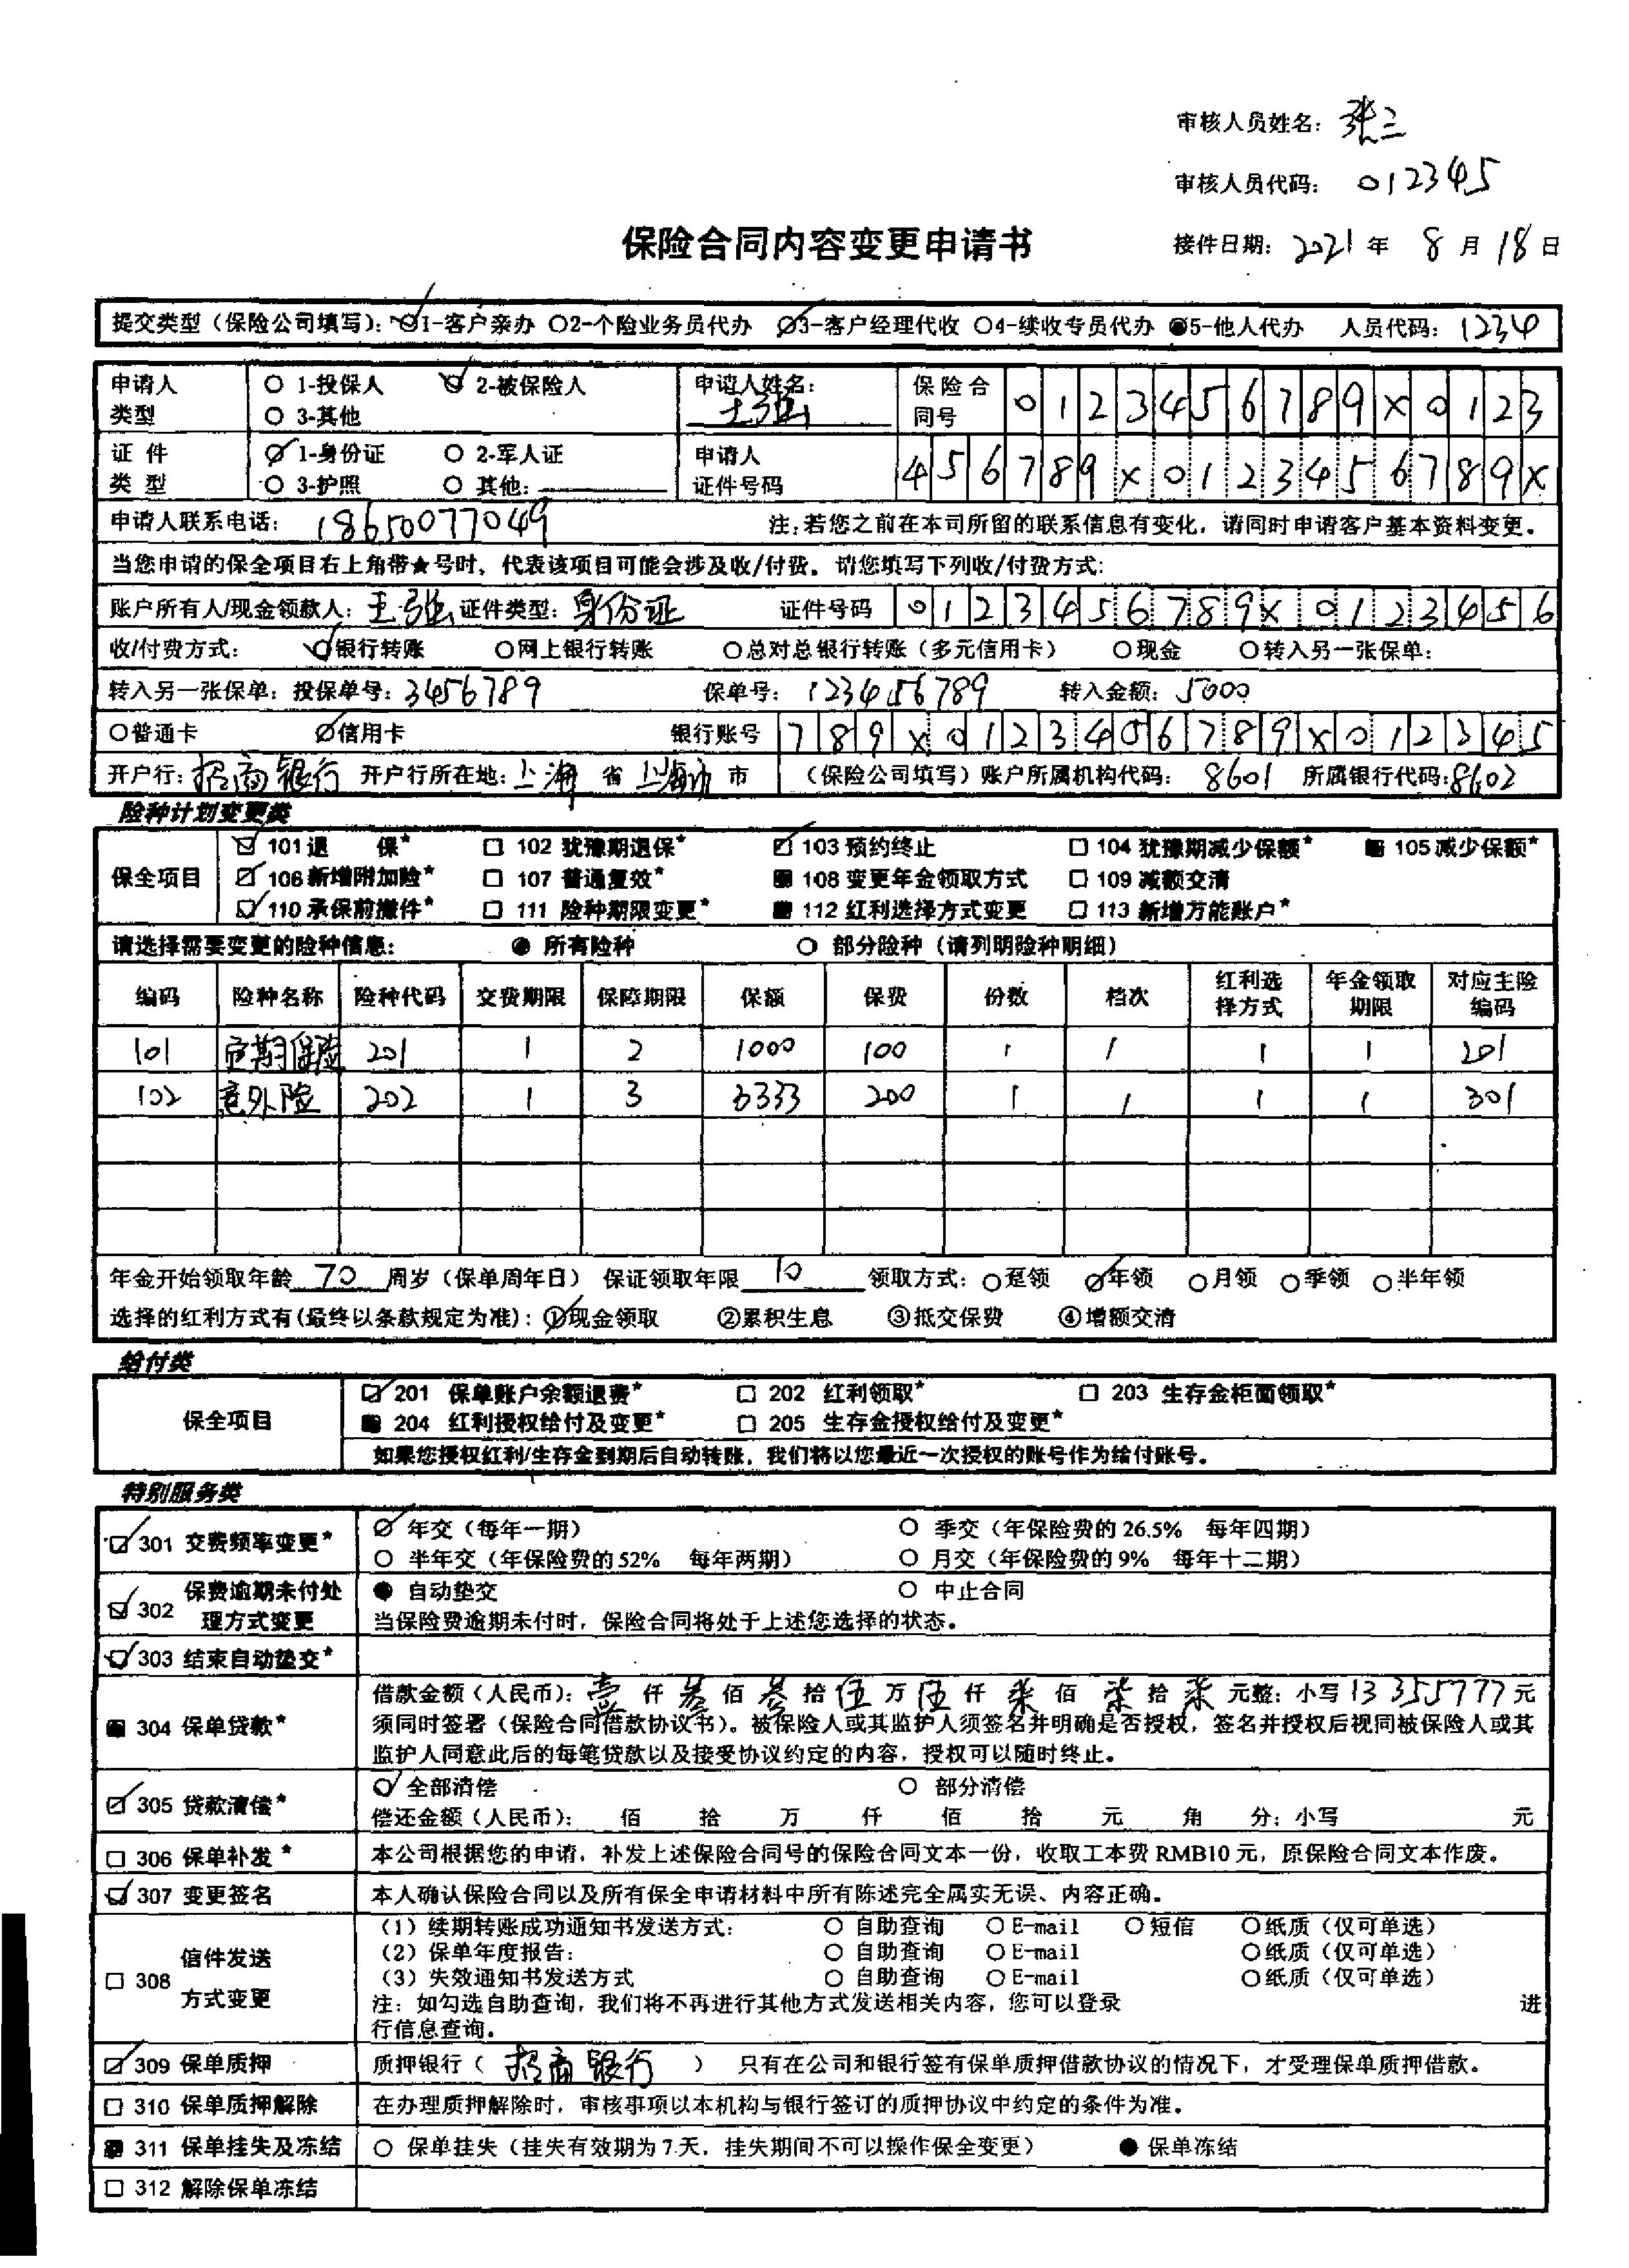 审核人员姓名：张三
审核人员代码：012345
保险合同内容变更申请书
接件日期：2021年 8月18日
提交类型（保险公司填写）：○1-客户亲办 ○2-个险业务员代办 ○3-客户经理代收 ○4-续收专员代办 ●5-他人代办 人员代码：1234
申请人类型 ○ 1-投保人 ○ 2-被保险人 ○ 3-其他 申请人姓名：王强 保险合同号 0123456789X0123
证件类型 ○ 1-身份证 ○ 2-军人证 ○ 3-护照 ○ 其他： 申请人证件号码 456789X0123456789X
申请人联系电话：18650077049 注：若您之前在本司所留的联系信息有变化，请同时申请客户基本资料变更。
当您申请的保全项目右上角带★号时，代表该项目可能会涉及收/付费。请您填写下列收/付费方式：
账户所有人/现金领款人：王强 证件类型：身份证 证件号码 0123456789X0123456
收/付费方式： ○银行转账 ○网上银行转账 ○总对总银行转账（多元信用卡） ○现金 ○转入另一张保单：
转入另一张保单：投保单号：3456789 保单号：123456789 转入金额：5000
○普通卡 ○信用卡 银行账号 789X0123456789X012345
开户行：招商银行 开户行所在地：上海 省 上海 市 （保险公司填写）账户所属机构代码： 8601 所属银行代码：8602
险种计划变更类
保全项目
□ 101 退 保* □ 102 犹豫期退保* □ 103 预约终止 □ 104 犹豫期减少保额* ■ 105 减少保额*
□ 106 新增附加险* □ 107 普通复效* ■ 108 变更年金领取方式 □ 109 减额交清
□ 110 承保前撤件* □ 111 险种期限变更* ■ 112 红利选择方式变更 □ 113 新增万能账户*
请选择需要变更的险种信息： ● 所有险种 ○ 部分险种（请列明险种明细）
编码 险种名称 险种代码 交费期限 保障期限 保额 保费 份数 档次 红利选择方式 年金领取期限 对应主险编码
101 定期保险 201 1 2 1000 100 1 1 1 1 201
102 意外险 202 1 3 3333 200 1 1 1 1 301
年金开始领取年龄 70 周岁（保单周年日） 保证领取年限 10 领取方式：○趸领 ○年领 ○月领 ○季领 ○半年领
选择的红利方式有（最终以条款规定为准）：①现金领取 ②累积生息 ③抵交保费 ④增额交清
给付类
保全项目
□ 201 保单账户余额退费* □ 202 红利领取* □ 203 生存金柜面领取*
■ 204 红利授权给付及变更* □ 205 生存金授权给付及变更*
如果您授权红利/生存金到期后自动转账，我们将以您最近一次授权的账号作为给付账号。
特别服务类
□ 301 交费频率变更* ○ 年交（每年一期） ○ 季交（年保险费的 26.5% 每年四期）
○ 半年交（年保险费的 52% 每年两期） ○ 月交（年保险费的 9% 每年十二期）
□ 302 保费逾期未付处理方式变更 ● 自动垫交 ○ 中止合同
当保险费逾期未付时，保险合同将处于上述您选择的状态。
□ 303 结束自动垫交*
■ 304 保单贷款* 借款金额（人民币）：壹 仟 叁 佰 叁 拾 伍 万 伍 仟 柒 佰 柒 拾 柒 元整；小写13355777元
须同时签署（保险合同借款协议书）。被保险人或其监护人须签名并明确是否授权，签名并授权后视同被保险人或其
监护人同意此后的每笔贷款以及接受协议约定的内容，授权可以随时终止。
□ 305 贷款清偿* ○ 全部清偿 ○ 部分清偿
偿还金额（人民币）： 佰 拾 万 仟 佰 拾 元 角 分；小写 元
□ 306 保单补发* 本公司根据您的申请，补发上述保险合同号的保险合同文本一份，收取工本费 RMB10 元，原保险合同文本作废。
□ 307 变更签名 本人确认保险合同以及所有保全申请材料中所有陈述完全属实无误、内容正确。
□ 308 信件发送方式变更
（1）续期转账成功通知书发送方式： ○ 自助查询 ○ E-mail ○ 短信 ○纸质（仅可单选）
（2）保单年度报告： ○ 自助查询 ○ E-mail ○纸质（仅可单选）
（3）失效通知书发送方式 ○ 自助查询 ○ E-mail ○纸质（仅可单选）
注：如勾选自助查询，我们将不再进行其他方式发送相关内容，您可以登录 进
行信息查询。
□ 309 保单质押 质押银行（ 招商银行 ） 只有在公司和银行签有保单质押借款协议的情况下，才受理保单质押借款。
□ 310 保单质押解除 在办理质押解除时，审核事项以本机构与银行签订的质押协议中约定的条件为准。
■ 311 保单挂失及冻结 ○ 保单挂失（挂失有效期为 7 天，挂失期间不可以操作保全变更） ● 保单冻结
□ 312 解除保单冻结